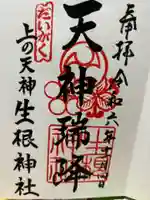 奉拝 令和六年十一月
天神瑞降
だいがく
上の天神 生根神社